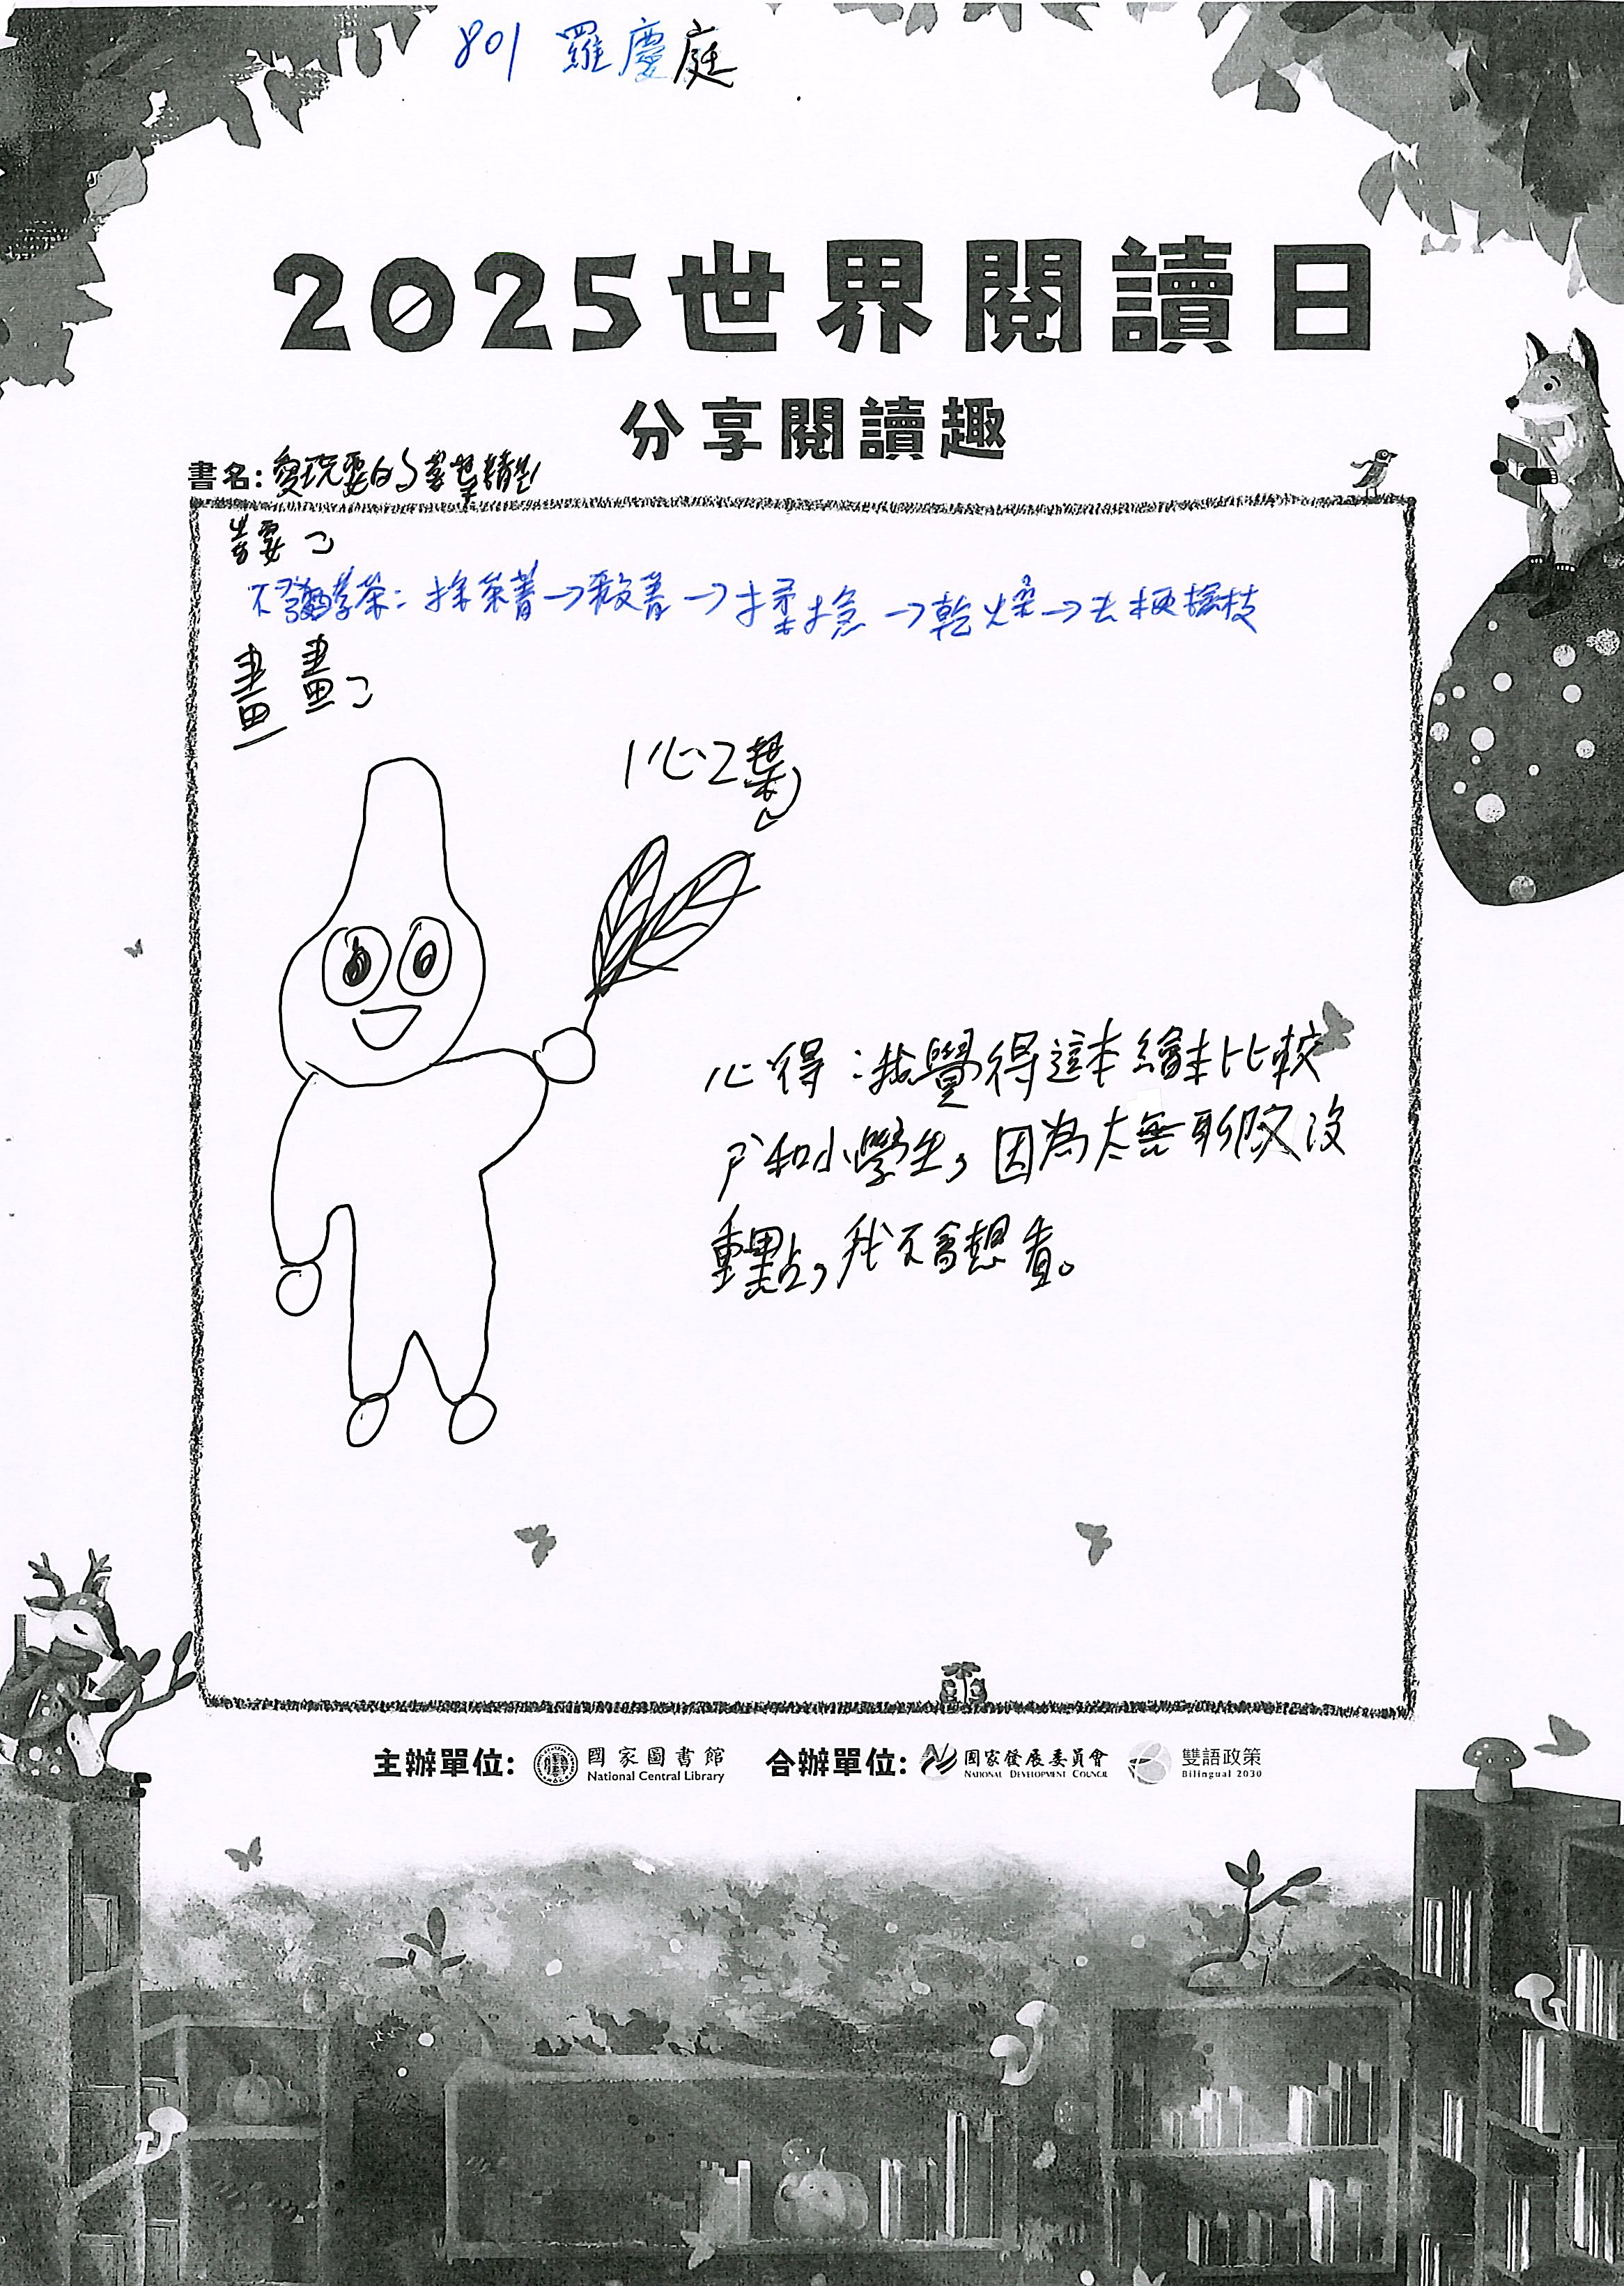 801 羅慶庭
2025世界閱讀日
分享閱讀趣
書名：愛玩耍的茶葉精靈
摘要：
不發酵茶：採茶菁→殺菁→揉捻→乾燥→去梗揀枝
畫畫：
1心2葉
心得：我覺得這本繪本比較
適和小學生，因為太無聊又沒
重點，我不會想看。
主辦單位： 國家圖書館 National Central Library 合辦單位： 國家發展委員會 NATIONAL DEVELOPMENT COUNCIL 雙語政策 Bilingual 2030